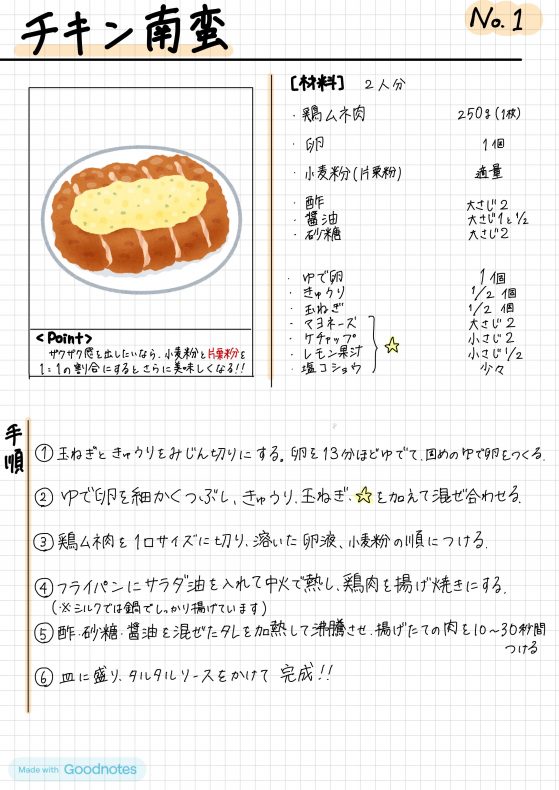 チキン南蛮
No.1
[材料] 2人分
・鶏ムネ肉 250g(1枚)
・卵 1個
・小麦粉(片栗粉) 適量
・酢 大さじ2
・醤油 大さじ1と1/2
・砂糖 大さじ2
・ゆで卵 1個
・きゅうり 1/2個
・玉ねぎ 1/2個
・マヨネーズ 大さじ2
・ケチャップ 小さじ2
・レモン果汁 小さじ1/2
・塩コショウ 少々
<Point>
ザクザク感を出したいなら、小麦粉と片栗粉を
1:1の割合にするとさらに美味しくなる!!
手順
① 玉ねぎときゅうりをみじん切りにする。卵を13分ほどゆでて、固めのゆで卵をつくる。
② ゆで卵を細かくつぶし、きゅうり、玉ねぎ、☆を加えて混ぜ合わせる。
③ 鶏ムネ肉を1口サイズに切り、溶いた卵液、小麦粉の順につける。
④ フライパンにサラダ油を入れて中火で熱し、鶏肉を揚げ焼きにする。
(※シルクでは鍋でしっかり揚げています)
⑤ 酢・砂糖・醤油を混ぜたタレを加熱して沸騰させ、揚げたての肉を10〜30秒間
つける
⑥ 皿に盛り、タルタルソースをかけて 完成!!
Made with Goodnotes